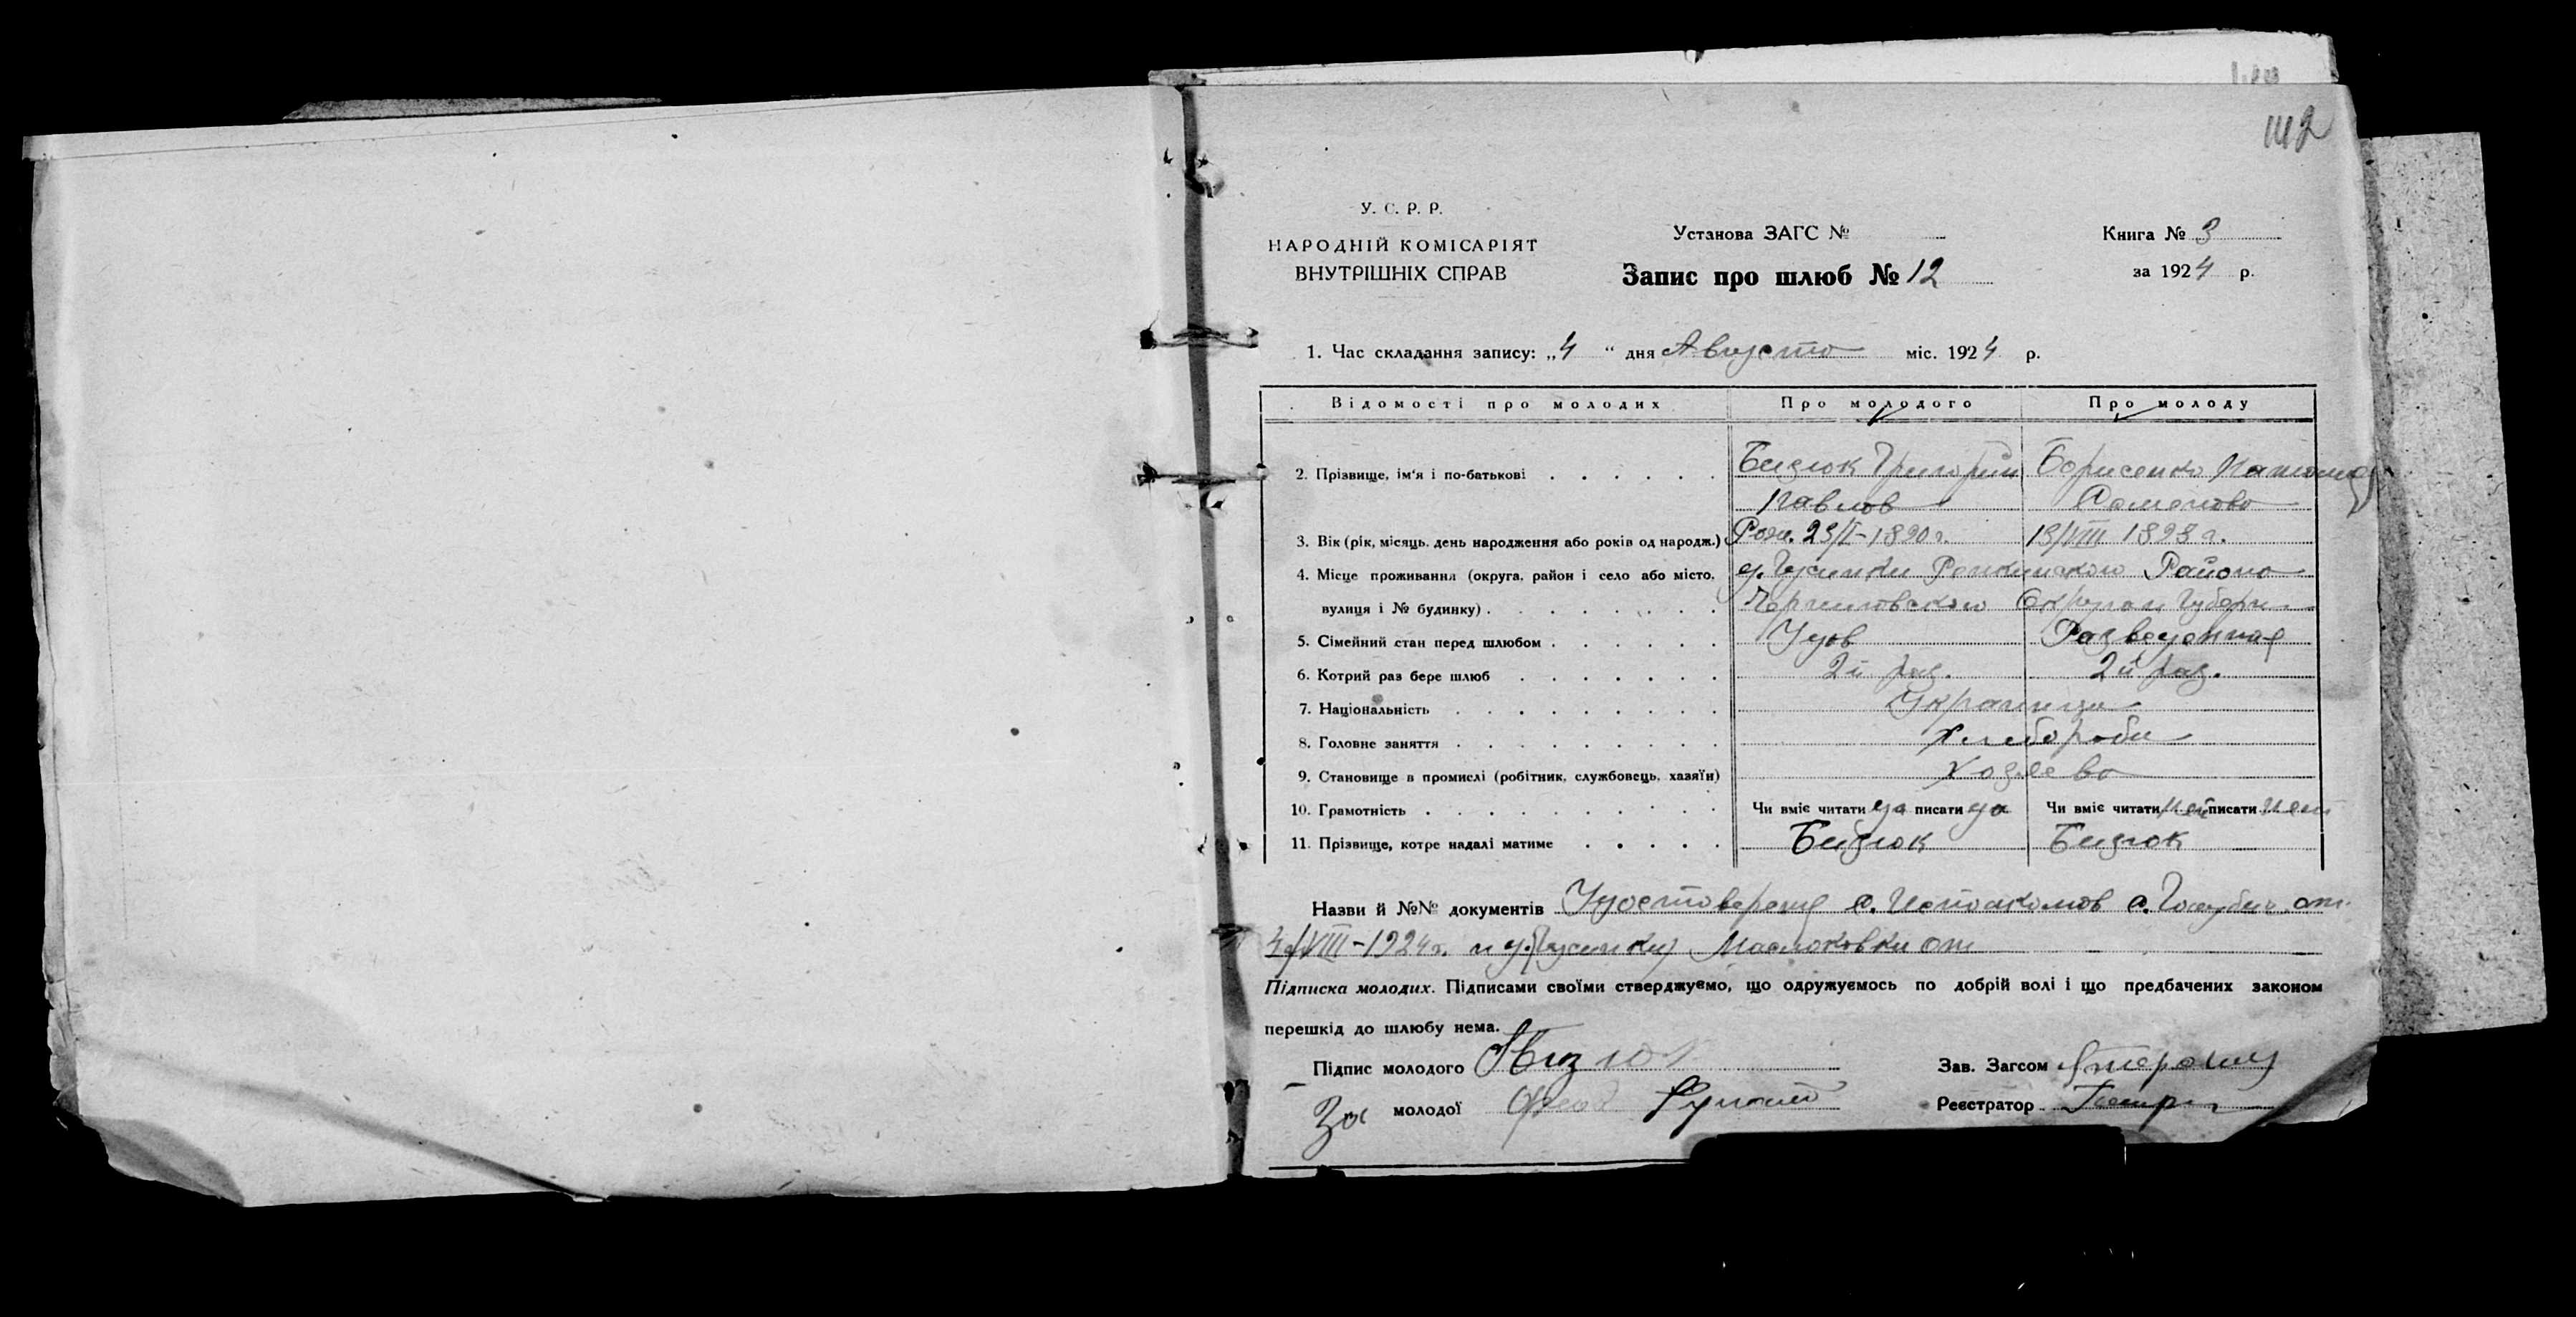 112
У. С. Р. Р.
НАРОДНІЙ КОМІСАРІЯТ
ВНУТРІШНІХ СПРАВ
Установа ЗАГС №
Запис про шлюб № 12
Книга № 3
за 1924 р.
1. Час складання запису: „4“ дня Августа міс. 1924 р.
Відомості про молодих Про молодого Про молоду
2. Прізвище, ім'я і по-батькові Бизюк Григорий Борисенко Наталия
Павлов Семенова
3. Вік (рік, місяць, день народження або років од народж.) Рожд. 25/I-1890 г. 15/VIII 1898 г.
4. Місце проживання (округа, район і село або місто, д. Гусинки Репкинского Района
вулиця і № будинку) Черниговского Округа и Губерн
5. Сімейний стан перед шлюбом Удов Разведенная
6. Котрий раз бере шлюб 2й раз. 2й раз.
7. Національність Украинци
8. Головне заняття Хлебороби
9. Становище в промислі (робітник, службовець, хазяїн) Хозяева
10. Грамотність Чи вміє читати да писати да Чи вміє читати нет писати нет
11. Прізвище, котре надалі матиме Бизюк Бизюк
Назви й №№ документів Удостоверения с. Исполкомов с. Голубич. от
4/VIII-1924 г. и д. Гусинки Маслоковки от
Підписка молодих. Підписами своїми стверджуємо, що одружуємось по добрій волі і що предбачених законом
перешкід до шлюбу нема.
Підпис молодого Бизюк Зав. Загсом
За молодої Реєстратор